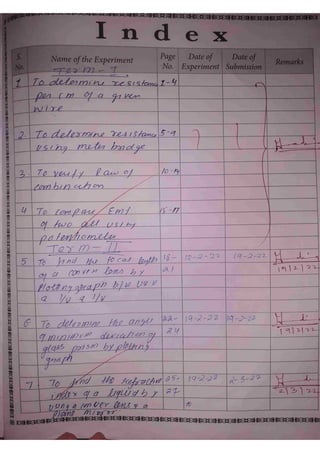 Index
S. No. Name of the Experiment Page No. Date of Experiment Date of Submission Remarks
Term - I
1 To determine resistance 1-4
per cm of a given
wire
2 To determine resistance 5-9
using meter bridge
3 To verify law of 10-14
combination
4 To compare EMF 15-17
of two cell using
potentiometer
Term - II
5 To find the focal length 18- 12-2-22 19-2-22
of a convex lens by 21 19/2/22
plotting graph b/w u & v
a 1/u a 1/v
6 To determine the angle 22- 19-2-22 19-2-22
of minimum deviation of 24 19/2/22
glass prism by plotting
graph
7 To find the refractive 25- 19-2-22 2-3-22
index of a liquid by 27 2/3/22
using convex lens & a
plane mirror